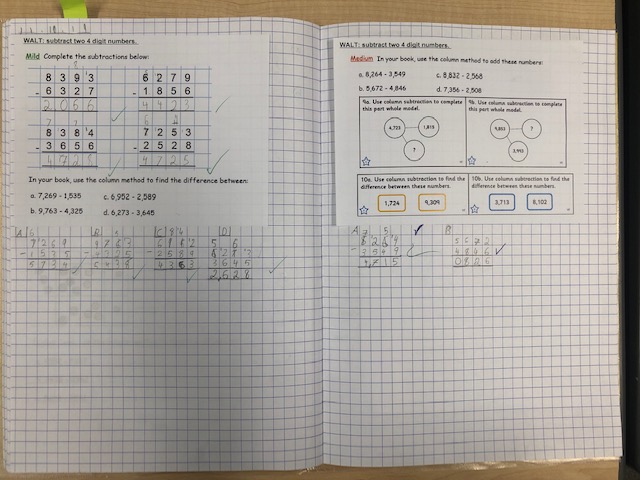 WALT: subtract two 4 digit numbers.
Mild Complete the subtractions below:
8 3 9 3
- 6 3 2 7
2 0 6 6
6 2 7 9
- 1 8 5 6
4 4 2 3
8 3 8 4
- 3 6 5 6
4 7 2 8
7 2 5 3
- 2 5 2 8
4 7 2 5
In your book, use the column method to find the difference between:
a. 7,269 - 1,535 c. 6,952 - 2,589
b. 9,763 - 4,325 d. 6,273 - 3,645
A
7 2 6 9
- 1 5 3 5
5 7 3 4
B
9 7 6 3
- 4 3 2 5
5 4 3 8
C
- 2 5 8 9
4 3 6 3
D
6 2 7 3
3 6 4 5
2,6 2 8
WALT: subtract two 4 digit numbers.
Medium In your book, use the column method to add these numbers:
a. 8,264 - 3,549 c. 8,832 - 2,568
b. 5,672 - 4,846 d. 7,356 - 2,508
9a. Use column subtraction to complete this part whole model.
4,723
1,815
?
9b. Use column subtraction to complete this part whole model.
?
10a. Use column subtraction to find the difference between these numbers.
1,724 9,309
10b. Use column subtraction to find the difference between these numbers.
3,713 8,102
A
8 2 6 4
- 3 5 4 9
4,7 1 5
B
5 6 7 2
4 8 4 6
0 8 2 6